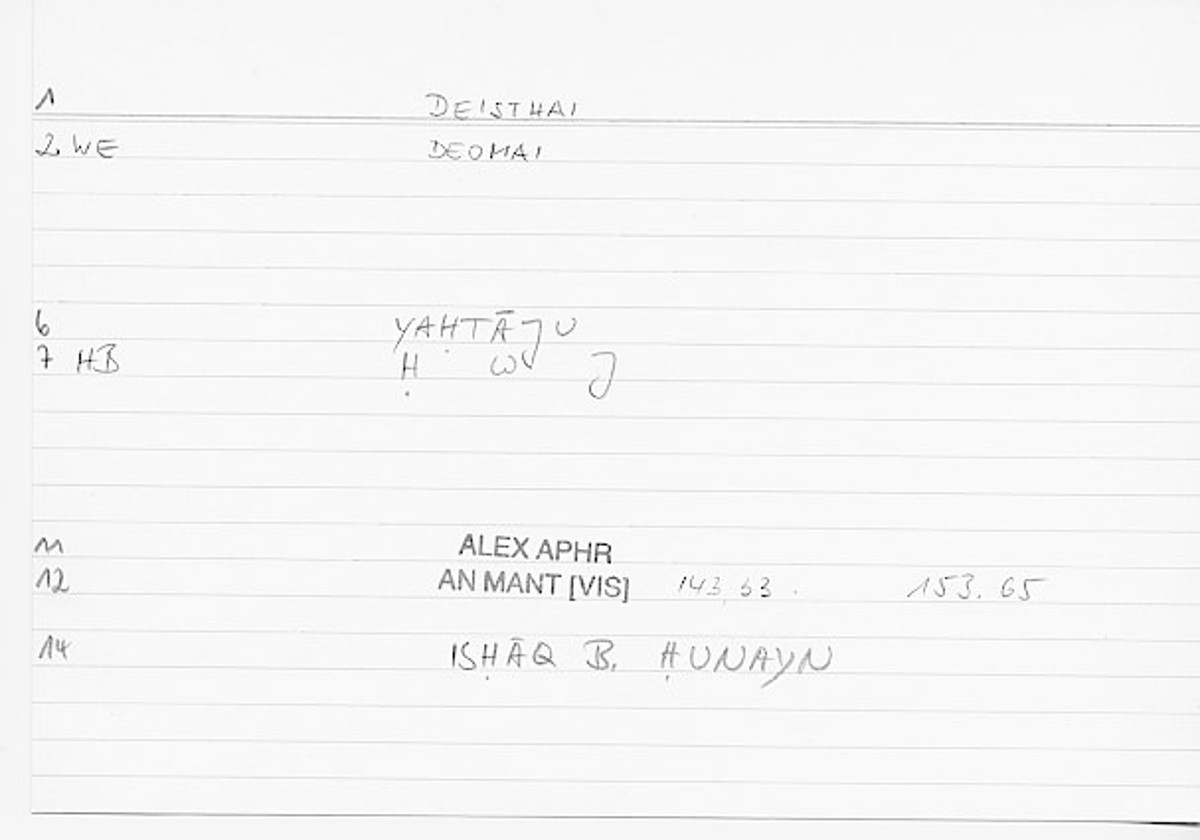 1 DEISTHAI
2 WE DEOMAI
6 YAḤTĀJU
7 ḤB Ḥ W J
11 ALEX APHR
12 AN MANT [VIS] 143, 53. 153. 65
14 ISḤĀQ B. ḤUNAYN